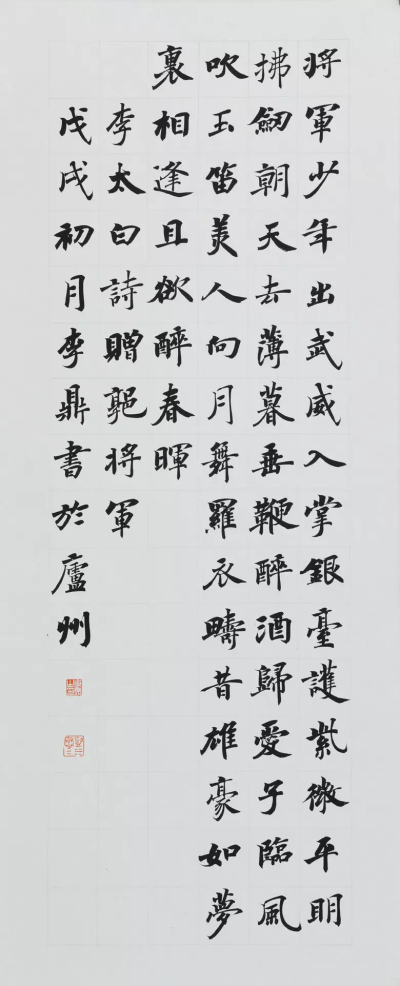 將軍少年出武威入掌銀臺護紫微平明
拂劒朝天去薄暮垂鞭醉酒歸愛子臨風
吹玉笛美人向月舞羅衣疇昔雄豪如夢
裏相逢且欲醉春暉
李太白詩贈郭將軍
戊戌初月李鼎書於廬州